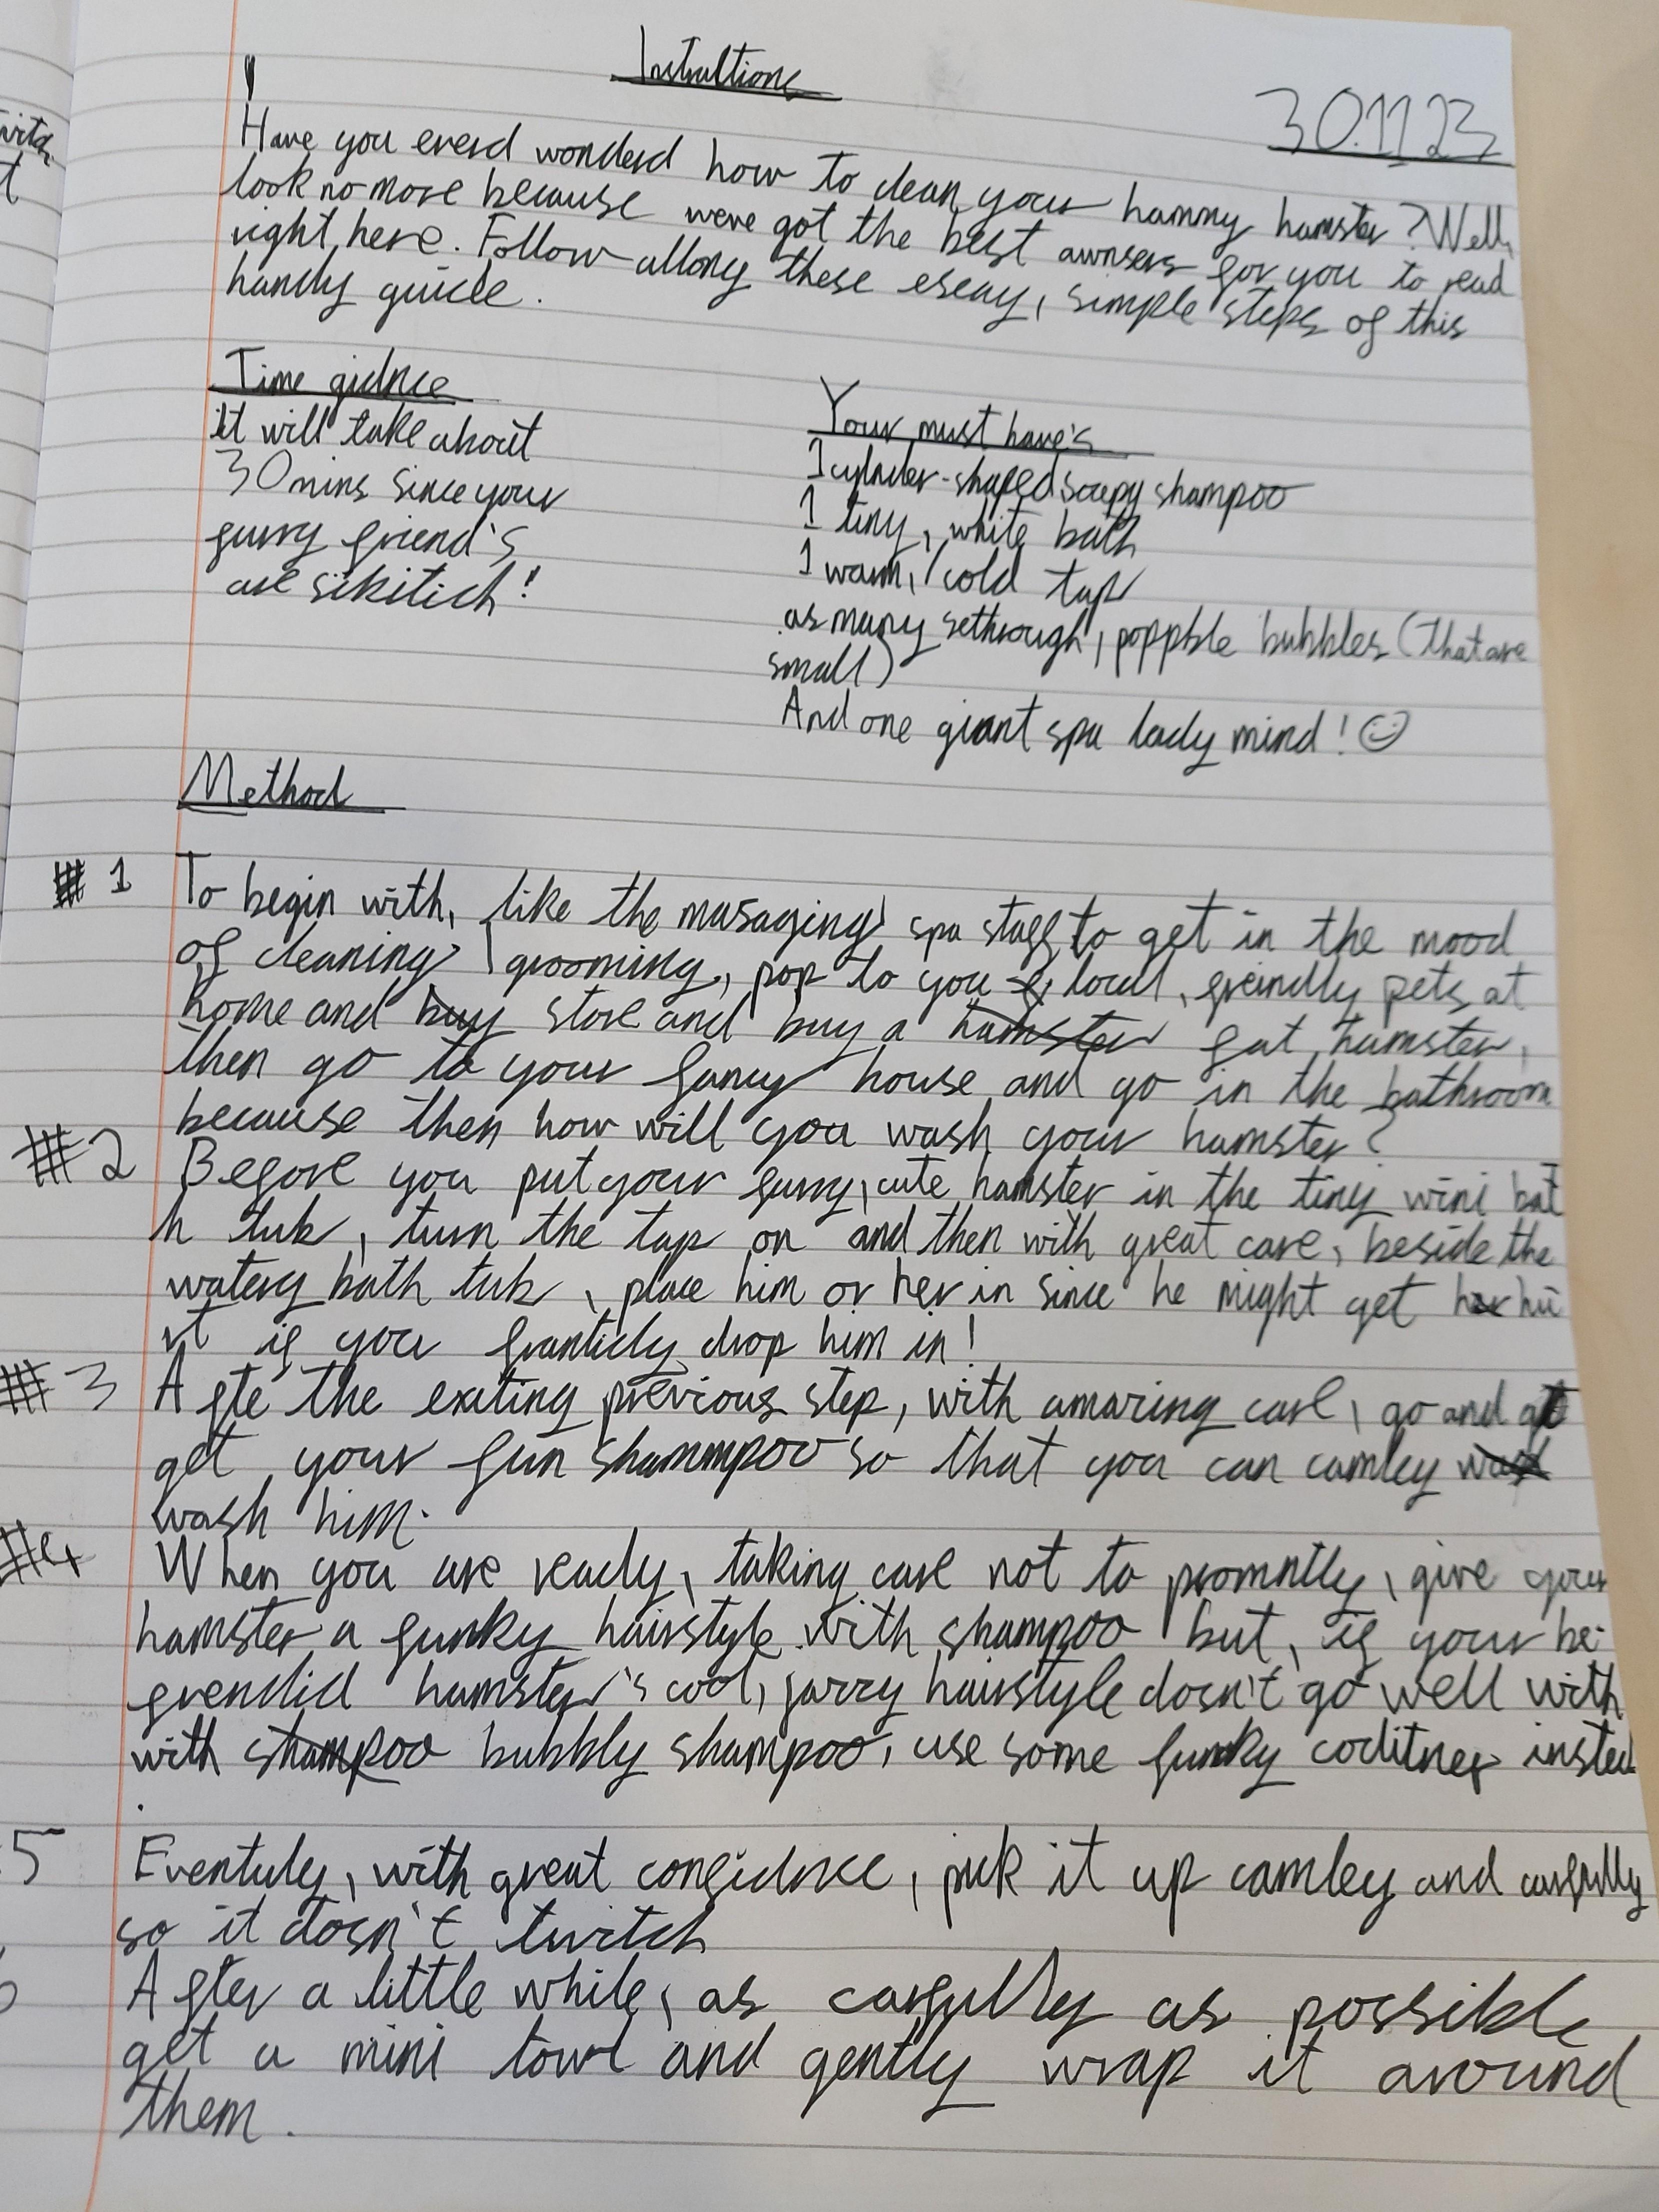 Instructions
30.11.23
Have you everd wonderd how to clean your hammy hamster? Well,
look no more because weve got the best awnsers for you to read
right here. Follow allong these eseay, simple steps of this
handy guide.
Time gidnce
it will take about
30mins since your
furry friend's
are sikitich!
Your must have's
1 cylnder-shaped soapy shampoo
1 tiny, white bath
1 warm, cold tap
as many sethrough, poppble bubbles (that are
small)
And one giant spa lady mind!☺
Method
#1 To begin with, like the masaging spa staff, to get in the mood
of cleaning grooming, pop to you local, freindly pets at
home and buy store and buy a hamster fat hamster,
then go to your fancy house and go in the bathroom
because then how will you wash your hamster?
#2 Before you put your furry, cute hamster in the tiny wini bat
h tub, turn the tap on and then with great care, beside the
watery bath tub, place him or her in since he might get hu
rt if you franticly drop him in!
#3 Afte the exiting previous step, with amazing care, go and
get your fun shammpoo so that you can camley
wash him.
#4 When you are ready, taking care not to promntly, give your
hamster a funky hairstyle with shampoo but, if your be-
frendid hamster's cool, jazzy hairstyle dosn't go well with
with shampoo bubbly shampoo, use some funky coditner insted
.
5 Eventuly, with great confidnce, pick it up camley and carfully
so it dosn't twitch
After a little while, as carfully as possible,
get a mini towl and gently wrap it around
them.